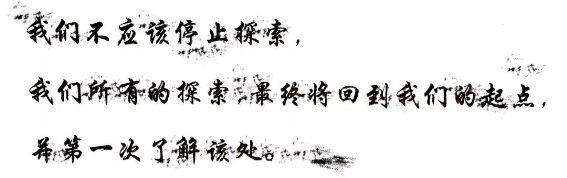 我们不应该停止探索，
我们所有的探索，最终将回到我们的起点，
并第一次了解该处。